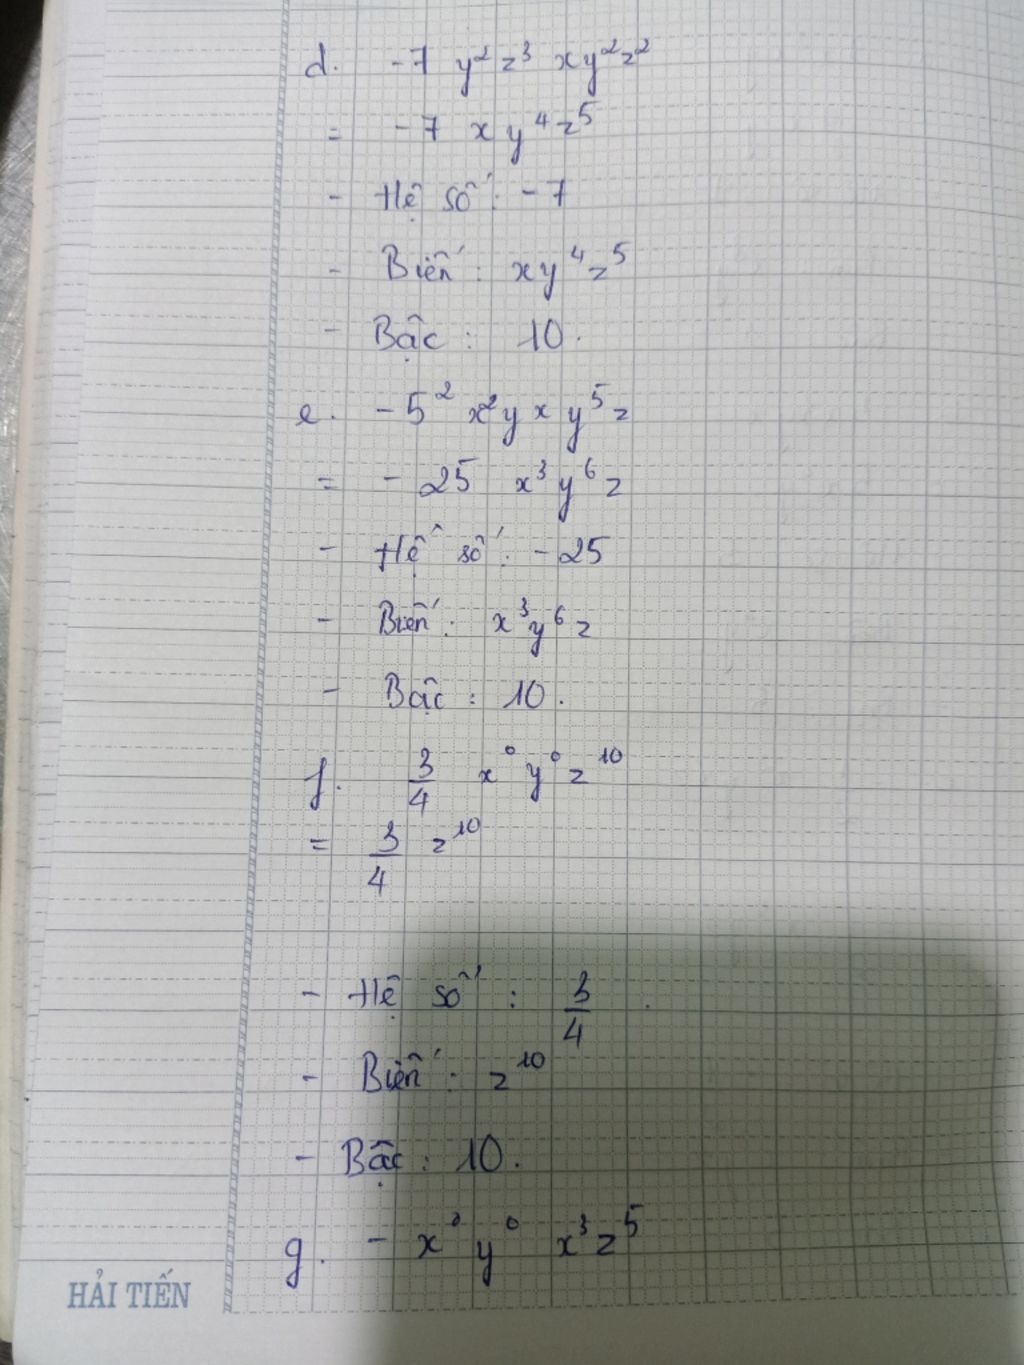 d. -7 y²z³ xy²z²
= -7 xy⁴z⁵
- Hệ số: -7
- Biến: xy⁴z⁵
- Bậc: 10.
e. -5² x²y x y⁵z
= -25 x³y⁶z
- Hệ số: -25
- Biến: x³y⁶z
- Bậc: 10.
f. 3/4 x⁰y⁰z¹⁰
= 3/4 z¹⁰
- Hệ số: 3/4.
- Biến: z¹⁰
- Bậc: 10.
g. -x⁰y⁰ x³z⁵
HẢI TIẾN